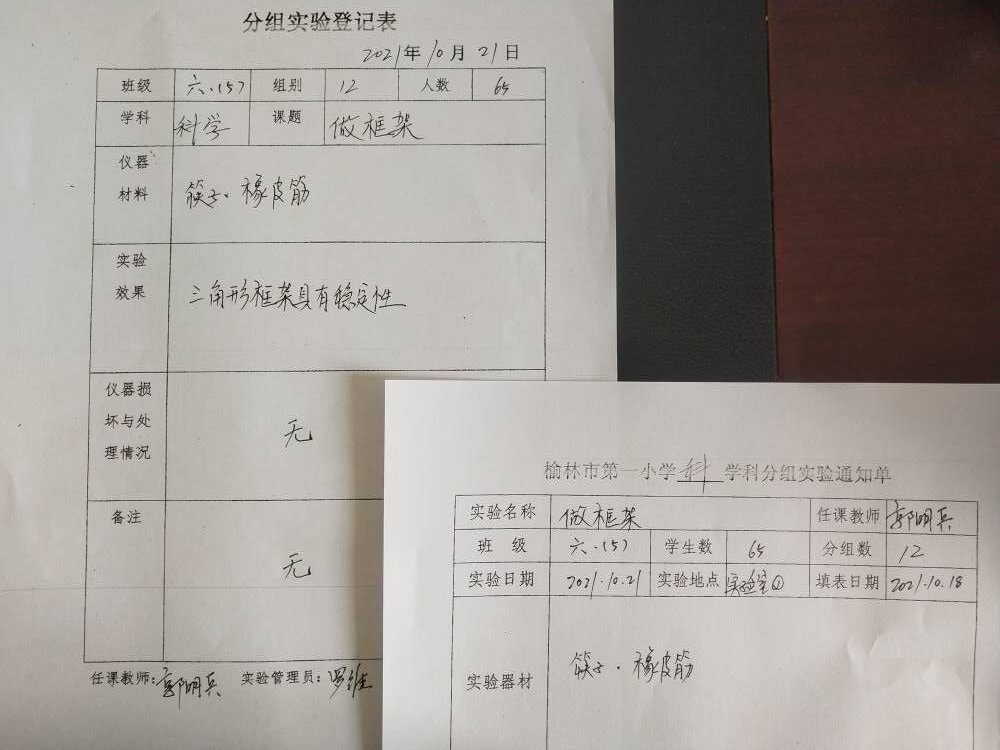 分组实验登记表
2021年10月21日
班级 六.(5) 组别 12 人数 65
学科 科学 课题 做框架
仪器
材料
筷子、橡皮筋
实验
效果
三角形框架具有稳定性
仪器损
坏与处
理情况
无
备注
无
任课教师:郭明兵 实验管理员:罗维
榆林市第一小学科学科分组实验通知单
实验名称 做框架 任课教师 郭明兵
班 级 六.(5) 学生数 65 分组数 12
实验日期 2021.10.21 实验地点 实验室① 填表日期 2021.10.18
实验器材 筷子.橡皮筋